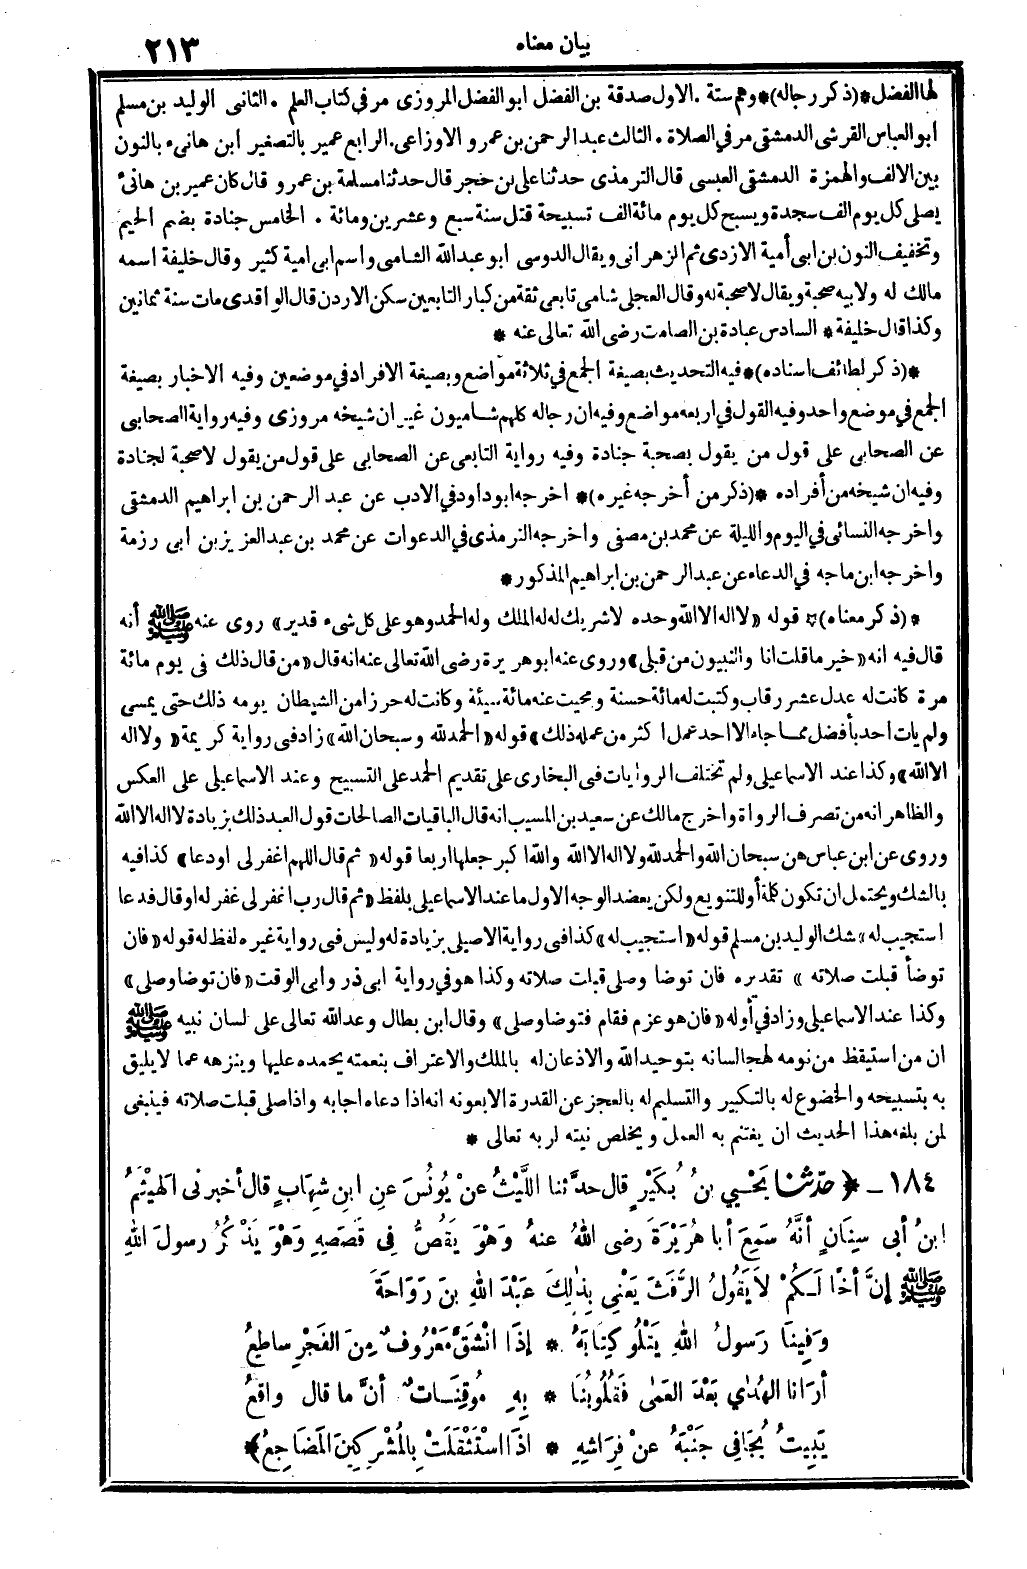 بيان معناه
٢١٣
لها الفضل *(ذكر رجاله)* وهم ستة . الاول صدقة بن الفضل ابو الفضل المروزى مر فى كتاب العلم . الثانى الوليد بن مسلم
ابو العباس القرشى الدمشقى مر فى الصلاة . الثالث عبد الرحمن بن عمرو الاوزاعى . الرابع عمير بالتصغير ابن هانىء بالنون
بين الالف والهمزة الدمشقى العبسى قال الترمذى حدثنا على بن حجر قال حدثنا مسلمة بن عمرو قال كان عمير بن هانئ
يصلى كل يوم الف سجدة ويسبح كل يوم مائة الف تسبيحة قتل سنة سبع وعشرين ومائة . الخامس جنادة بضم الجيم
وتخفيف النون بن ابى أمية الازدى ثم الزهرانى ويقال الدوسى ابو عبد الله الشامى واسم ابى امية كثير وقال خليفة اسمه
مالك له ولابيه صحبة ويقال لا صحبة له وقال العجلى شامى تابعى ثقة من كبار التابعين سكن الاردن قال الواقدى مات سنة ثمانين
وكذا قال خليفة * السادس عبادة بن الصامت رضى الله تعالى عنه *
*(ذكر لطائف اسناده)* فيه التحديث بصيغة الجمع فى ثلاثة مواضع وبصيغة الافراد فى موضعين وفيه الاخبار بصيغة
الجمع فى موضع واحد وفيه القول فى اربعه مواضع وفيه ان رجاله كلهم شاميون غير ان شيخه مروزى وفيه رواية الصحابى
عن الصحابى على قول من يقول بصحبة جنادة وفيه رواية التابعى عن الصحابى على قول من يقول لا صحبة لجنادة
وفيه ان شيخه من أفراده *(ذكر من أخرجه غيره)* اخرجه ابو داود فى الادب عن عبد الرحمن بن ابراهيم الدمشقى
واخرجه النسائى فى اليوم والليلة عن محمد بن مصفى واخرجه الترمذى فى الدعوات عن محمد بن عبد العزيز بن ابى رزمة
واخرجه ابن ماجه فى الدعاء عن عبد الرحمن بن ابراهيم المذكور *
*(ذكر معناه)* قوله «لا اله الا الله وحده لا شريك له له الملك وله الحمد وهو على كل شىء قدير» روى عنه ﷺ أنه
قال فيه انه «خير ما قلت انا والنبيون من قبلى» وروى عنه ابو هريرة رضى الله تعالى عنه انه قال «من قال ذلك فى يوم مائة
مرة كانت له عدل عشر رقاب وكتبت له مائة حسنة ومحيت عنه مائة سيئة وكانت له حرزا من الشيطان يومه ذلك حتى يمسى
ولم يات احد بأفضل مما جاء الا احد عمل اكثر من عمله ذلك» قوله «الحمد لله وسبحان الله» زاد فى رواية كريمة «ولا اله
الا الله» وكذا عند الاسماعيلى ولم تختلف الروايات فى البخارى على تقديم الحمد على التسبيح وعند الاسماعيلى على العكس
والظاهر انه من تصرف الرواة واخرج مالك عن سعيد بن المسيب انه قال الباقيات الصالحات قول العبد ذلك بزيادة لا اله الا الله
وروى عن ابن عباس هن سبحان الله والحمد لله ولا اله الا الله والله اكبر جعلها اربعا قوله «ثم قال اللهم اغفر لى او دعا» كذا فيه
بالشك ويحتمل ان تكون كلمة أو للتنويع ولكن يعضد الوجه الاول ما عند الاسماعيلى بلفظ «ثم قال رب اغفر لى غفر له او قال فدعا
استجيب له» شك الوليد بن مسلم قوله «استجيب له» كذا فى رواية الاصيلى بزيادة له وليس فى رواية غيره لفظ له قوله «فان
توضأ قبلت صلاته» تقديره فان توضا وصلى قبلت صلاته وكذا هو فى رواية ابى ذر وابى الوقت «فان توضا وصلى»
وكذا عند الاسماعيلى وزاد فى أوله «فان هو عزم فقام فتوضا وصلى» وقال ابن بطال وعد الله تعالى على لسان نبيه ﷺ
ان من استيقظ من نومه لهجا لسانه بتوحيد الله والاذعان له بالملك والاعتراف بنعمته يحمده عليها وينزهه عما لا يليق
به بتسبيحه والخضوع له بالتكبير والتسليم له بالعجز عن القدرة الا بعونه انه اذا دعاه اجابه واذا صلى قبلت صلاته فينبغى
لمن بلغه هذا الحديث ان يغتنم به العمل ويخلص نيته لربه تعالى *
١٨٤ ـ ﴿ حدّثنا يَحْيى بنُ بُكَيْرٍ قال حدَّثنا اللَّيْثُ عنْ يُونُسَ عنِ ابنِ شِهَابٍ قال أخبرنى الهَيْثَمُ
ابنُ أبى سِنَانٍ أنَّهُ سَمِعَ أبا هُرَيْرَةَ رضى اللهُ عنهُ وَهْوَ يَقُصُّ فِى قَصَصِهِ وَهْوَ يَذْكُرُ رسولَ اللهِ
ﷺ إنَّ أخًا لَـكُمْ لاَ يَقُولُ الرَّفَثَ يَعْنِى بِذٰلِكَ عَبْدَ اللهِ بنَ رَوَاحَةَ
وَفِينَا رَسولُ اللهِ يَتْلُو كِتَابَهُ * إذَا انْشَقَّ مَعْرُوفٌ مِنَ الفَجْرِ ساطِعُ
أرَانا الهُدٰى بَعْدَ العَمٰى فَقُلُوبُنَا * بِهِ مُوقِنَـاتٌ أنَّ ما قالَ واقعُ
يَبِيتُ يُجَافِى جَنْبَهُ عنْ فِرَاشِهِ * اذَا اسْتَثْقَلَتْ بِالْمُشْرِكِينَ المَضَاجِعُ ﴾